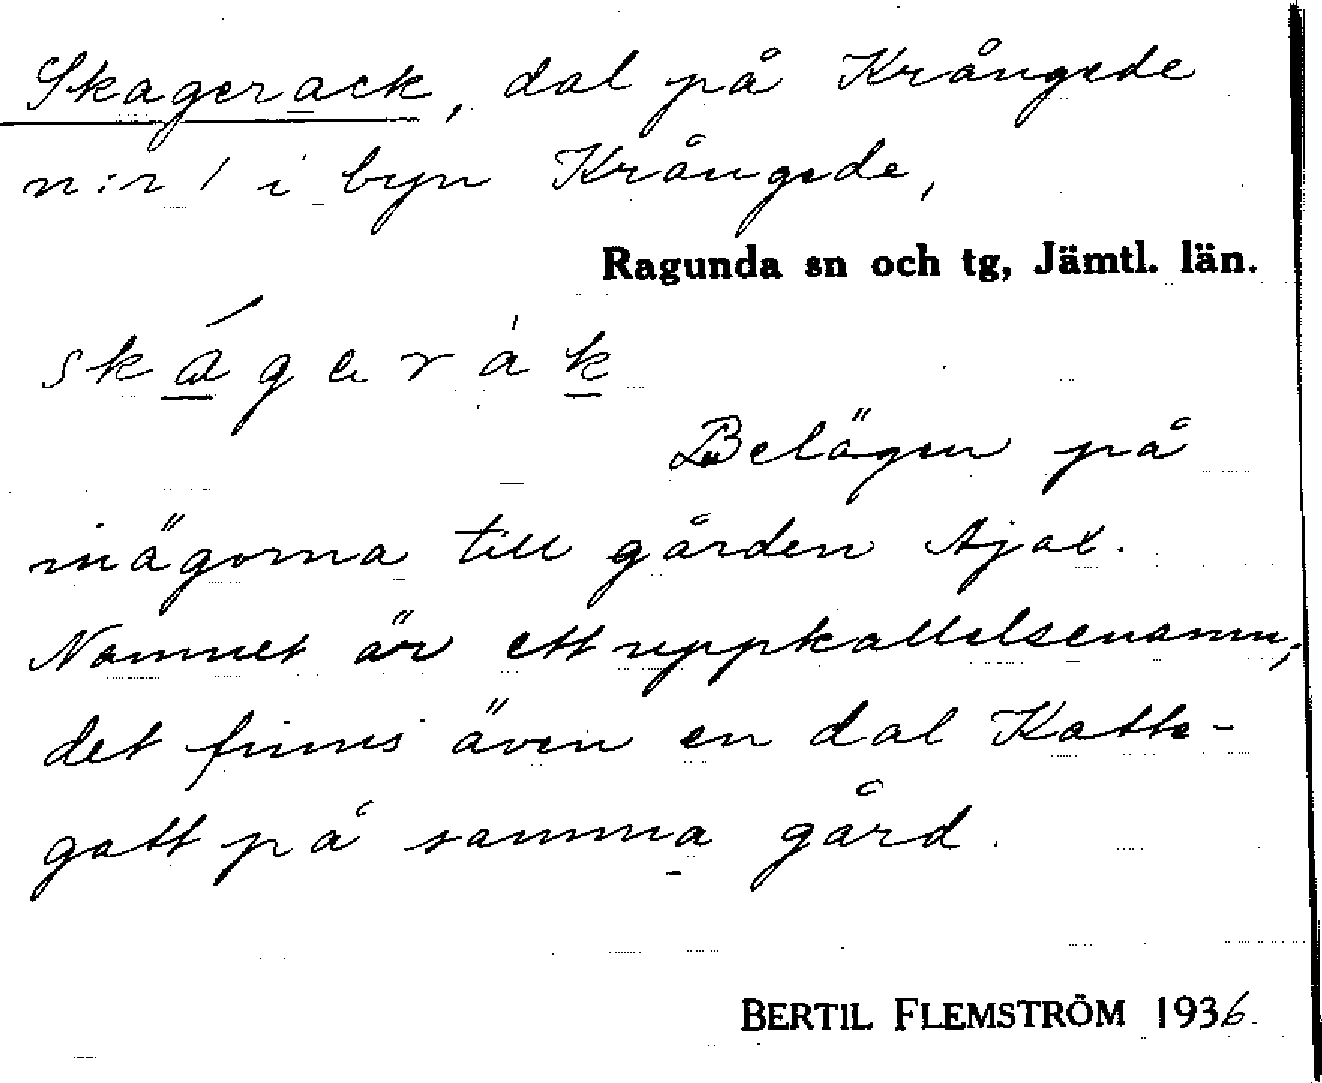 Skagerack, dal på Krångede
n:r 1 i byn Krångede,
Ragunda sn och tg, Jämtl. län.
skágeràk
Belägen på
inägorna till gården Ajax.
Namnet är ett uppkallelsenamn;
det finns även en dal Katte-
gatt på samma gård.
BERTIL FLEMSTRÖM 1936.